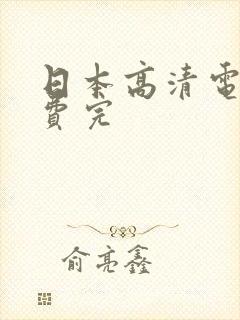 日本高清電
費完
俞亮鑫